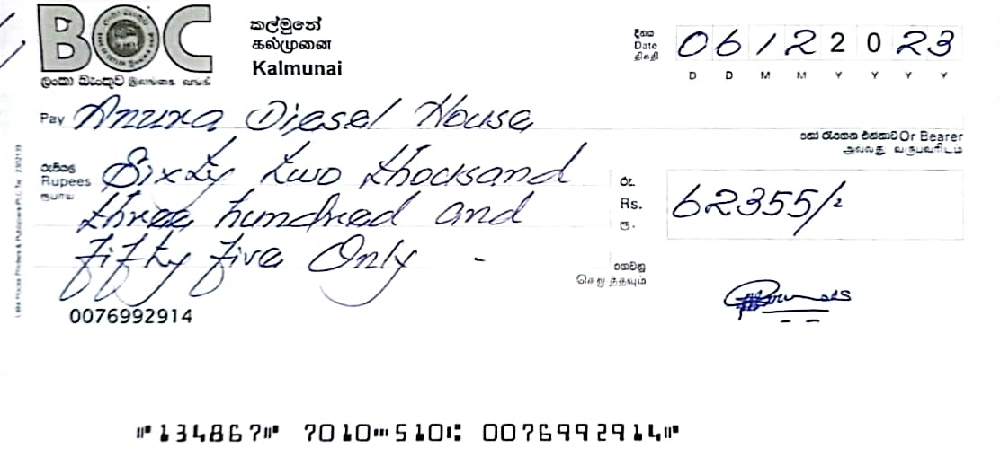 BOC
ලංකා බැංකුව இலங்கை வங்கி
කල්මුනේ
கல்முனை
Kalmunai
දිනය
Date
திகதி
06122023
D D M M Y Y Y Y
Pay Anura Diesel House
හෝ රැගෙන එන්නාට Or Bearer
அல்லது வருபவரிடம்
රුපියල්
Rupees
ரூபாய்
Sixty two thocksand
three hundred and
fifty five Only -
රු.
Rs.
ரூ.
62355/-
ගෙවනු
செலுத்தவும்
0076992914
⑈134867⑈ 7010⑉510⑆ 0076992914⑈